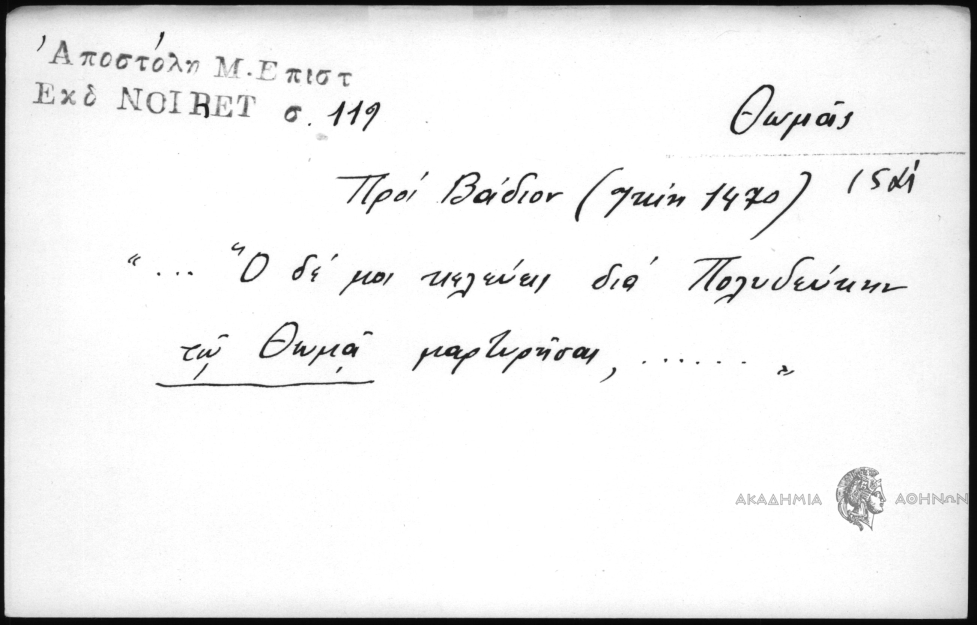 Ἀποστόλη Μ. Επιστ
Εκδ NOIRET σ. 119
Θωμᾶς
Πρός Βάδιον ( 1470) 15 αἰ
“... "Ὁ δέ μοι κελεύεις διά Πολυδεύκην
τῷ Θωμᾷ μαρτυρῆσαι, ...... „
ΑΚΑΔΗΜΙΑ ΑΘΗΝΩΝ